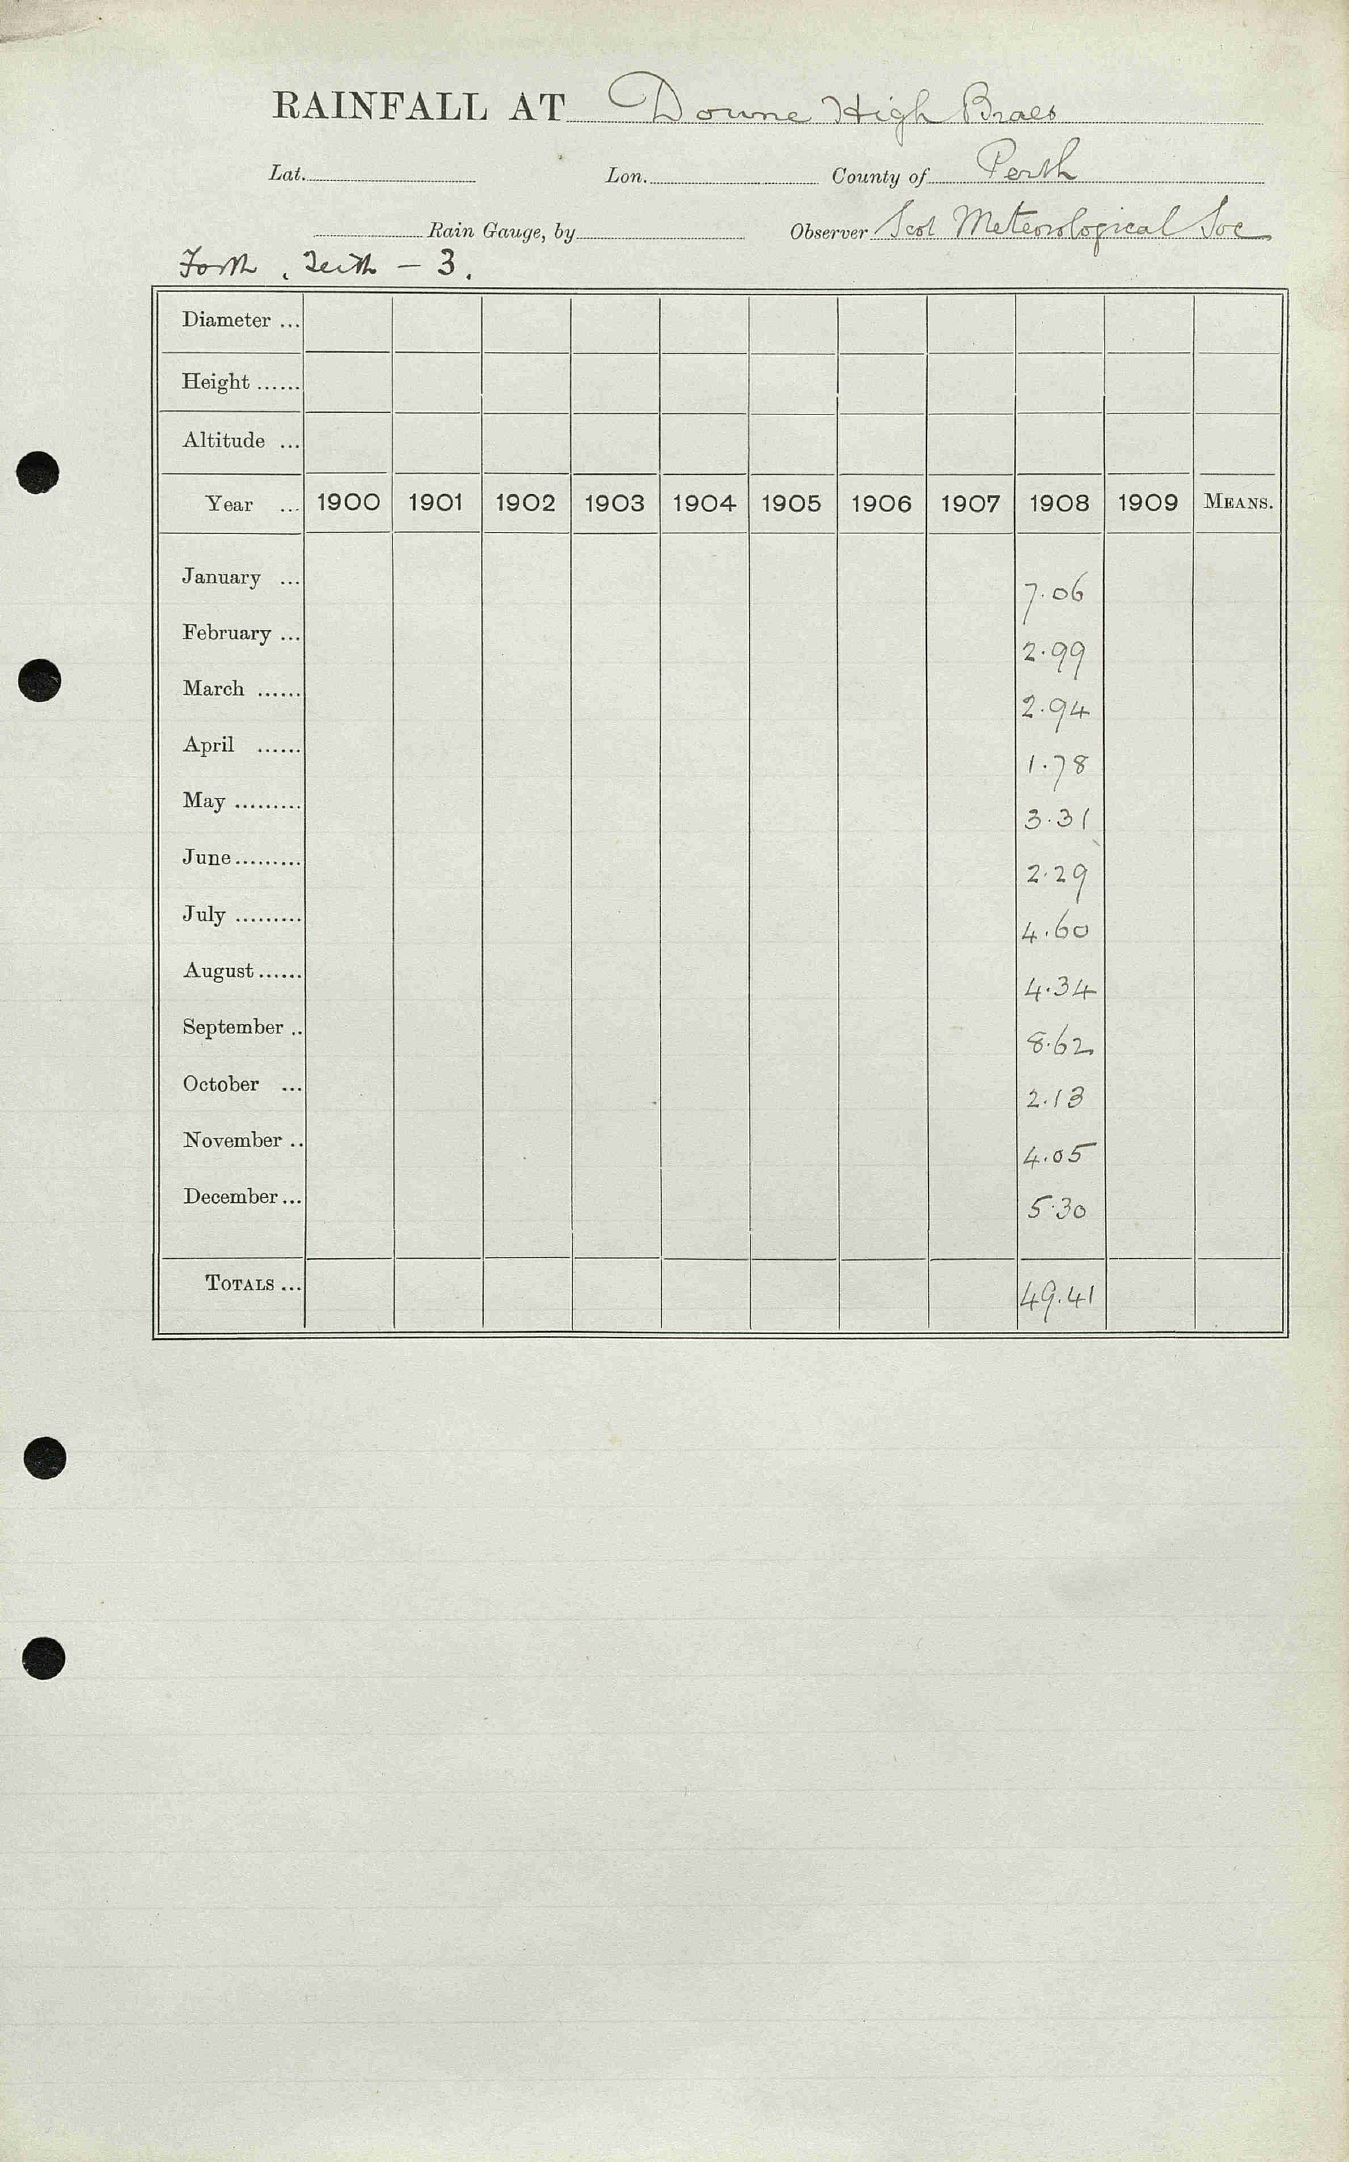 RAINFALL AT Doune High Braes
Lat. Lon. County of Perth
Rain Gauge, by Observer Scot Meteorological Soc
Forth, Teith - 3.
Diameter ...
Height ......
Altitude ...
Year ... 1900 1901 1902 1903 1904 1905 1906 1907 1908 1909 MEANS.
January ... 7.06
February ... 2.99
March ...... 2.94
April ...... 1.78
May ......... 3.31
June ......... 2.29
July ......... 4.60
August ...... 4.34
September .. 8.62
October ... 2.13
November .. 4.05
December ... 5.30
TOTALS ... 49.41